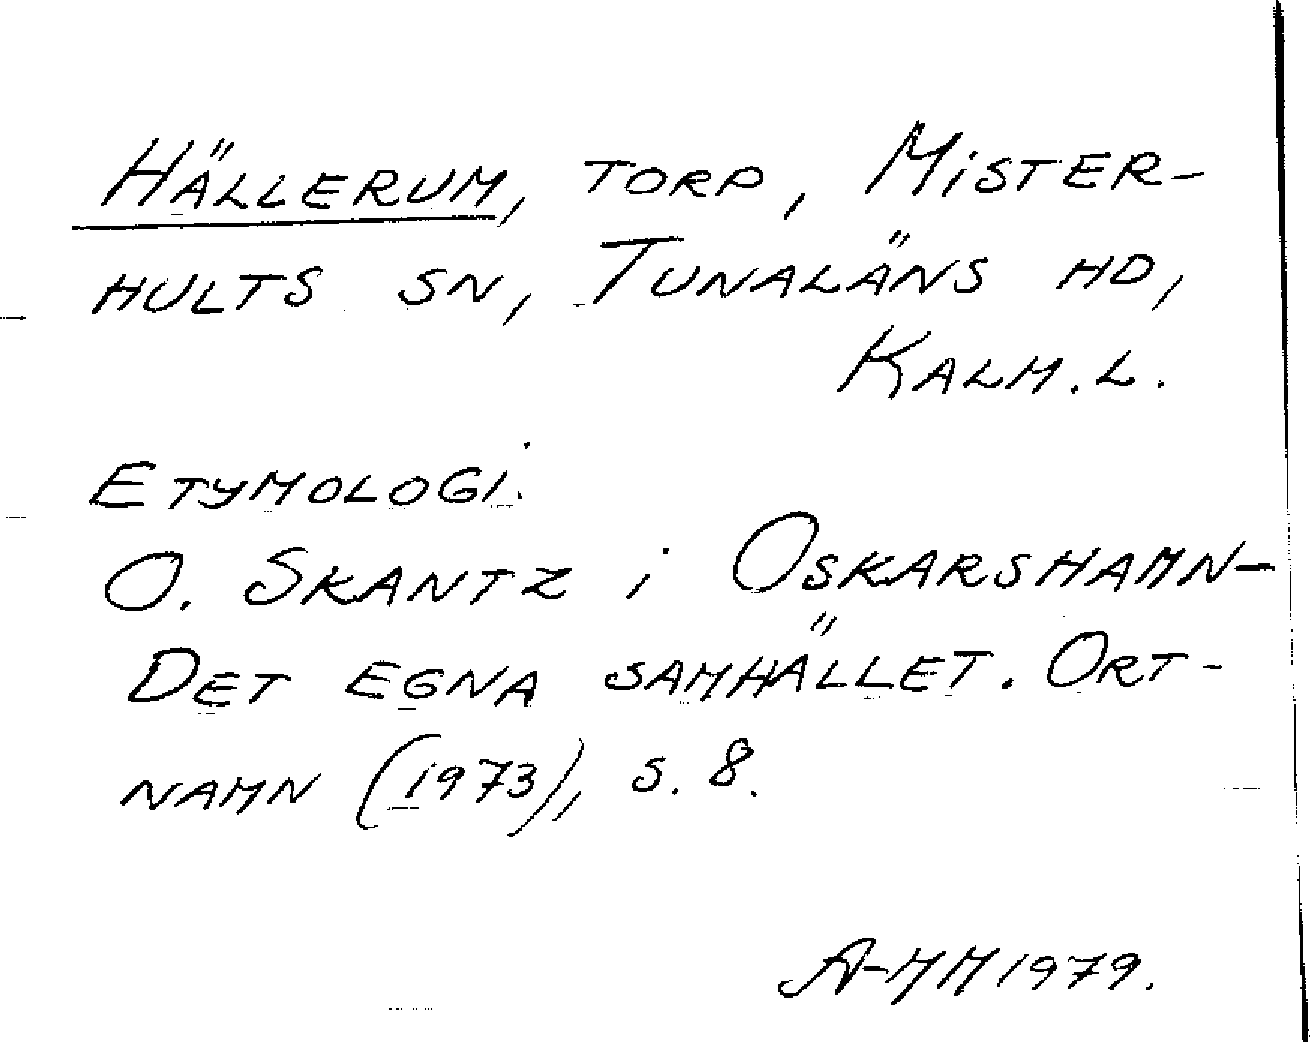 Hällerum, torp, Mister-
hults sn, Tunaläns hd,
Kalm. l.
Etymologi.
O. Skantz i Oskarshamn-
Det egna samhället. Ort-
namn (1973), s. 8.
A-MM 1979.